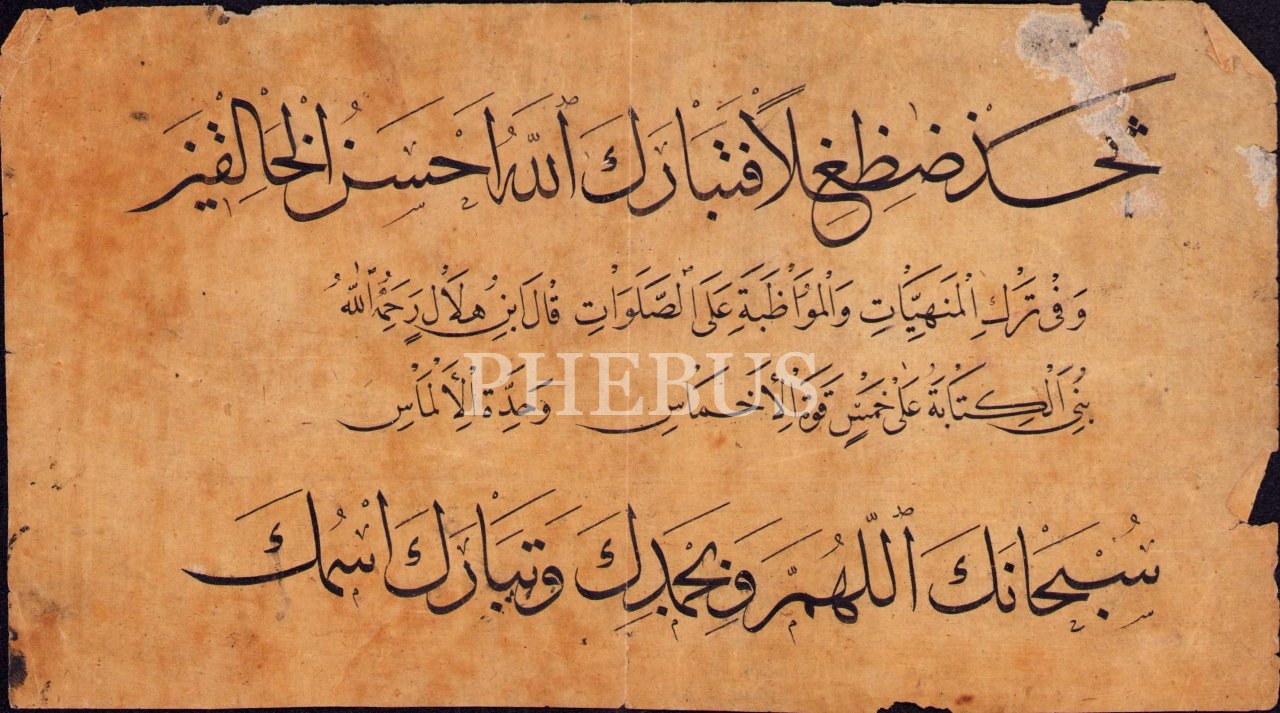 ثخذ ضظغلا فَتَبَارَكَ ٱللَّهُ اَحْسَنُ الْخَالِقِينَ
وَفِى تَرْكِ الْمَنْهِيَّاتِ وَالْمُوَاظَبَةِ عَلَى ٱلصَّلَوَاتِ قَالَ ابْنُ هِلَالْ رَحِمَهُ ٱللّٰهُ
بُنِىَ الْكِتَابَةُ عَلٰى خَمْسٍ قُوَّةُ الْاَخْمَاسِ وَحِدَّةُ الْاَلْمَاسِ
PHEBUS
سُبْحَانَكَ ٱللّٰهُمَّ وَبِحَمْدِكَ وَتَبَارَكَ اسْمُكَ